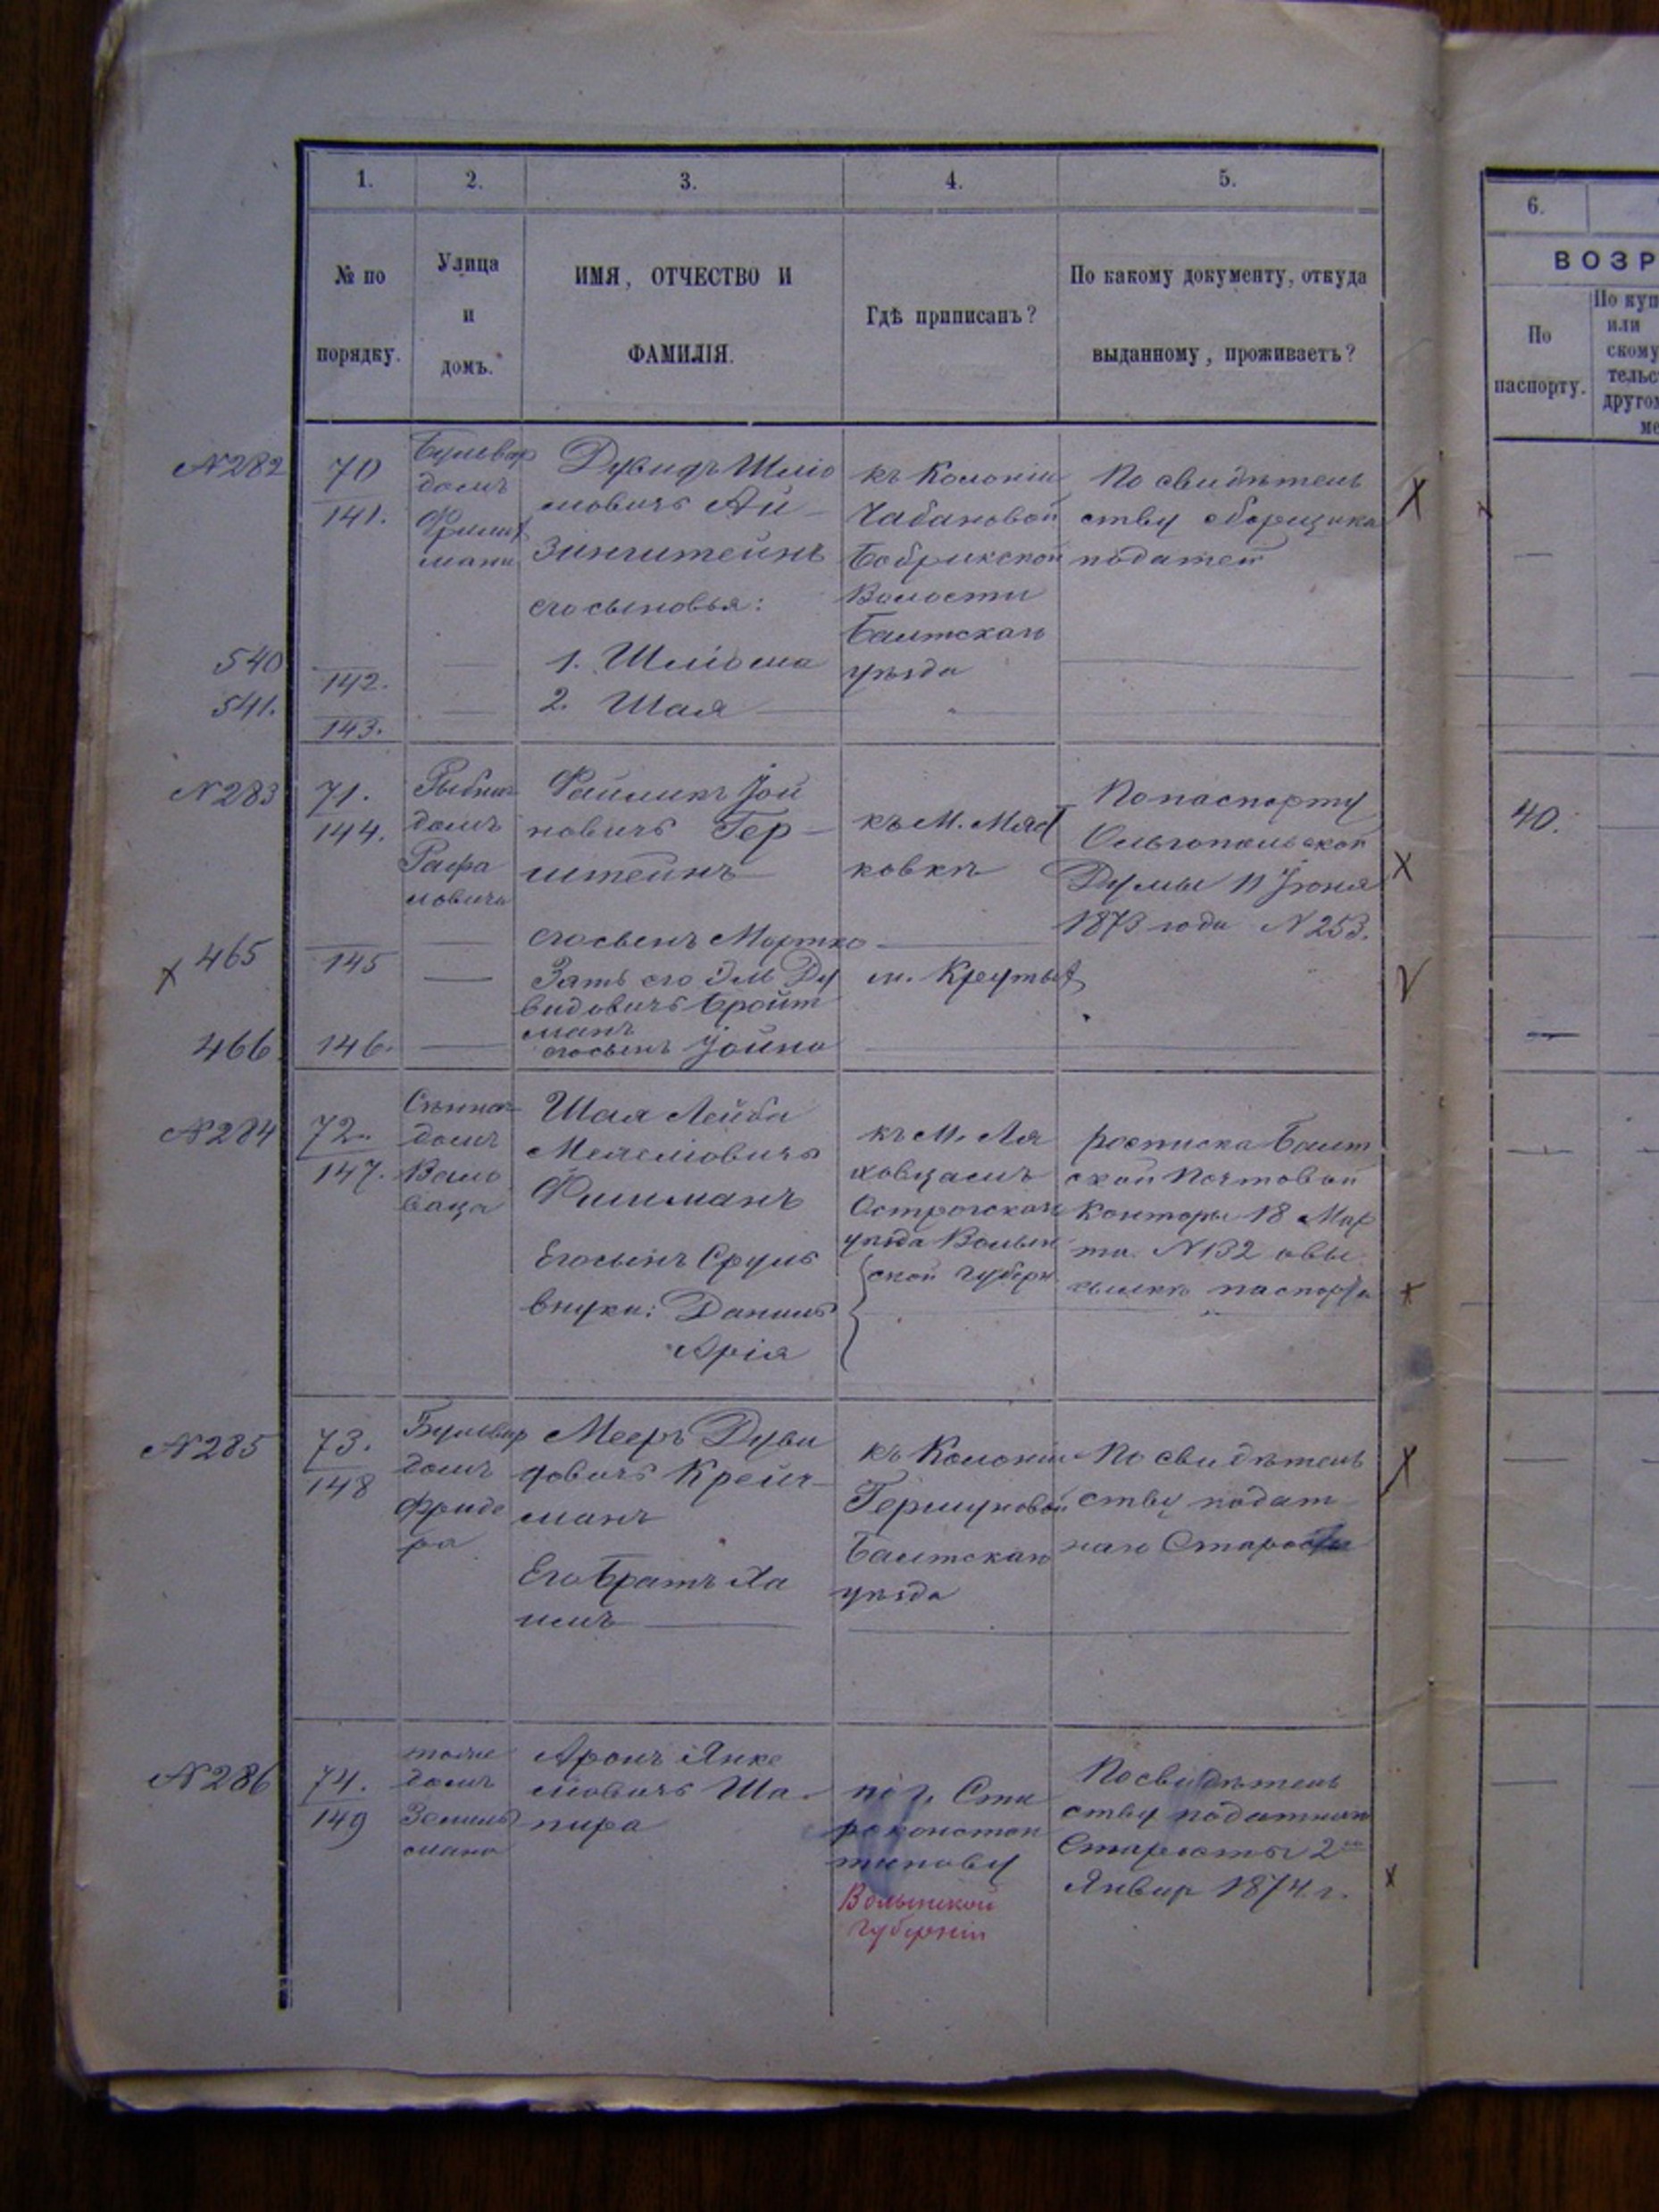 1.
2.
3.
4.
5.
6.
№ по
порядку.
Улица
и
домъ.
ИМЯ, ОТЧЕСТВО И
ФАМИЛІЯ.
Гдѣ приписанъ?
По какому документу, откуда
выданному, проживаетъ?
ВОЗР
По
паспорту.
По куп
или
скому
тельс
другом
ме
N 282
70
141.
Бульвар
домъ
мана
Дувидъ Шліо
мовичъ Ай-
зинштейнъ
его сыновья:
1. Шліома
2. Шая
къ Колоніи
Чабановой
Бобрикской
Волости
Балтскаго
уѣзда
По свидѣтель
ству сборщика
податей
X
540
142.
541.
143.
N 283
71.
144.
Рыбная
домъ
Рафа
ловича
Файликъ Іой
новичъ Гер-
штейнъ
его сынъ Мортко
Зять его Эль Ду
видовичъ Бройт
манъ
его сынъ Іойна
къ М. Мяст
ковкѣ
м. Крутых
По паспорту
Ольгопольской
Думы 11 Іюня
1873 года N 253.
X
40.
X 465
145
V
466
146.
N 284
72.
147.
Сѣнная
домъ
Шая Лейба
Мехелiовичъ
Фишманъ
Его сынъ Сруль
внуки: Даниль
Арія
къ М. Ля
ховцамъ
Острожскаго
уѣзда Волын
ской Губерн
росписка Балт
ской Почтовой
Конторы 18 Мар
та N 132 о вы
сылкѣ паспорта
x
N 285
73.
148
Бульвар
домъ
Фриде
ра
Мееръ Дуви
довичъ Крейч-
манъ
Его братъ Ха
имъ
къ Колоніи
Гершуновой
Балтскаго
уѣзда
По свидѣтель
ству подат
наго Старосты
X
N 286
74.
149
тоже
домъ
Зельмъ
мана
Аронъ Янке
левичъ Ша-
пира
по г. Ста
роконстан
тинову
Волынской
Губерніи
По свидѣтель
ству податнаго
Старосты 2го
Январ 1874 г.
x